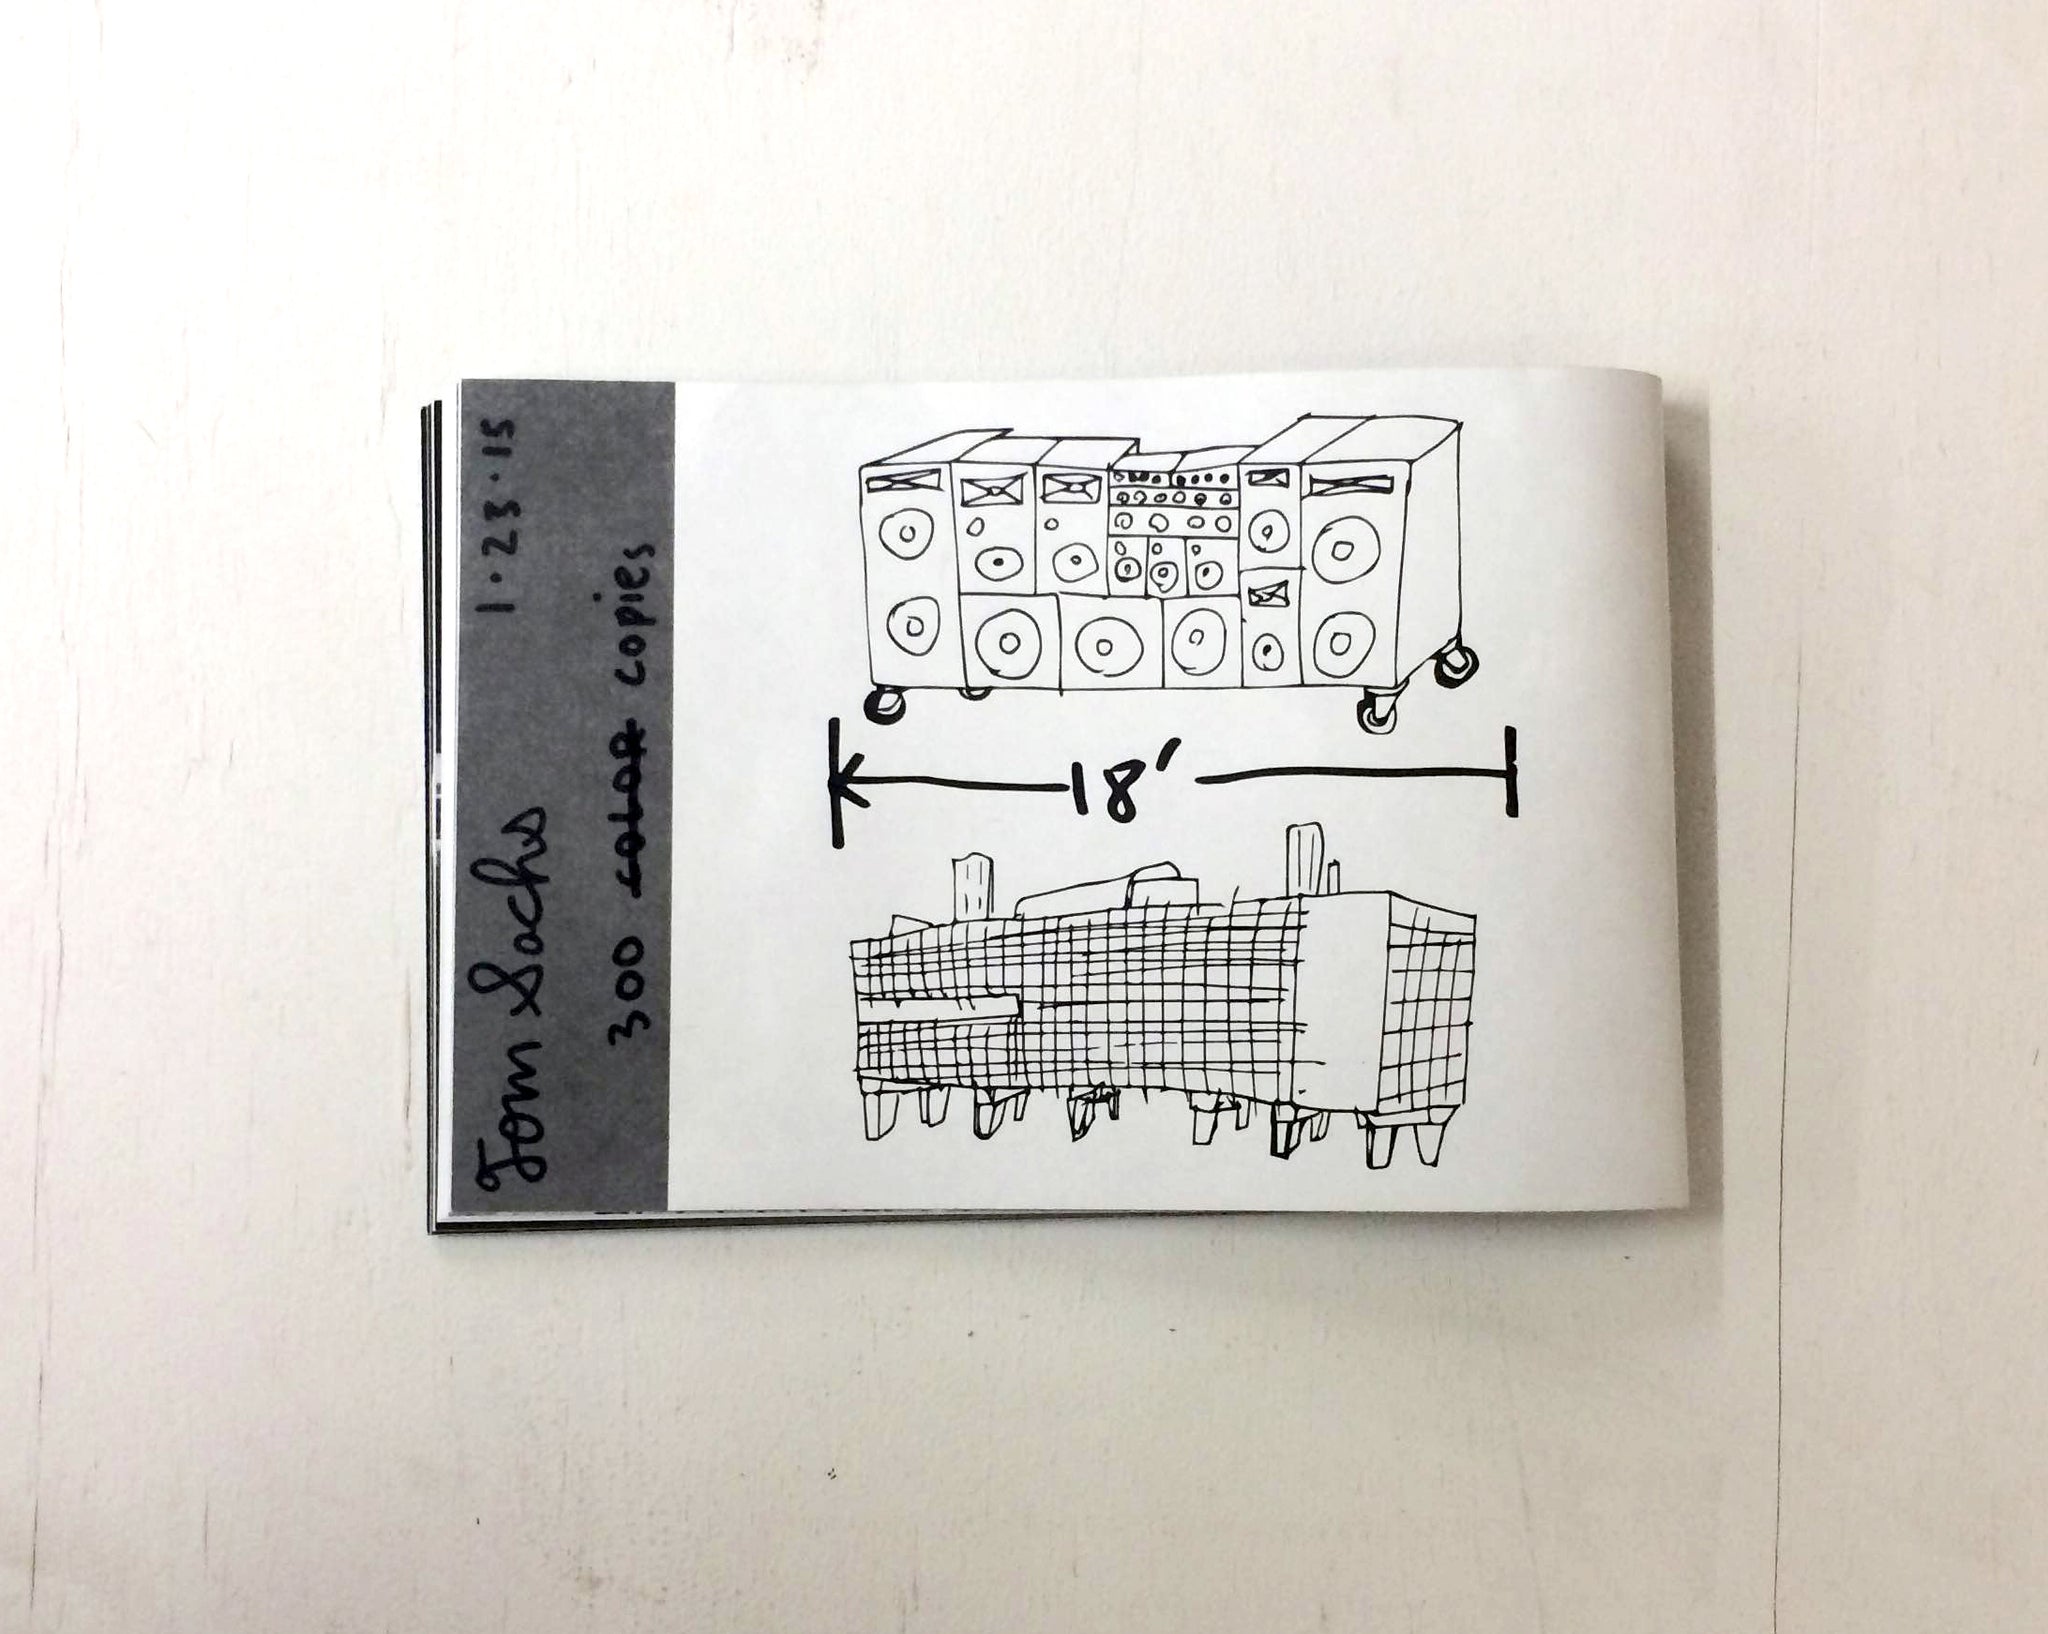 Tom Sachs 1.23.15
300 color copies
18'